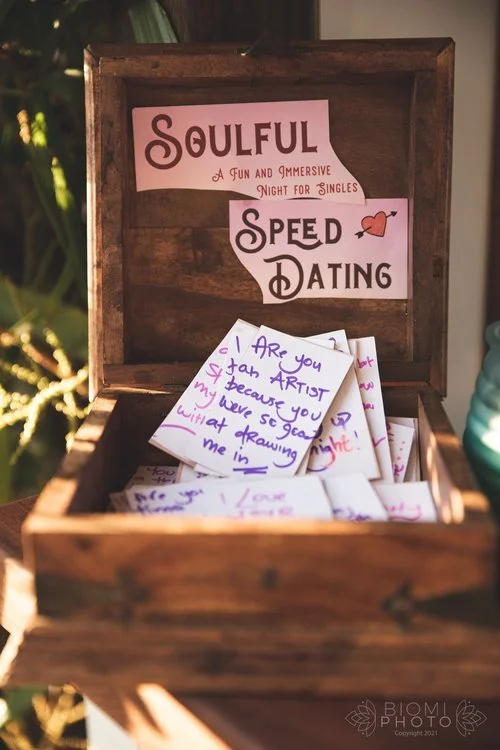 SOULFUL
A FUN AND IMMERSIVE
NIGHT FOR SINGLES
SPEED
DATING
ARe you
an ARTIST
because you
were so good
at drawing
me in
my
with
up
night!
you
Are you
I Love
BIOMI
PHOTO
Copyright 2021